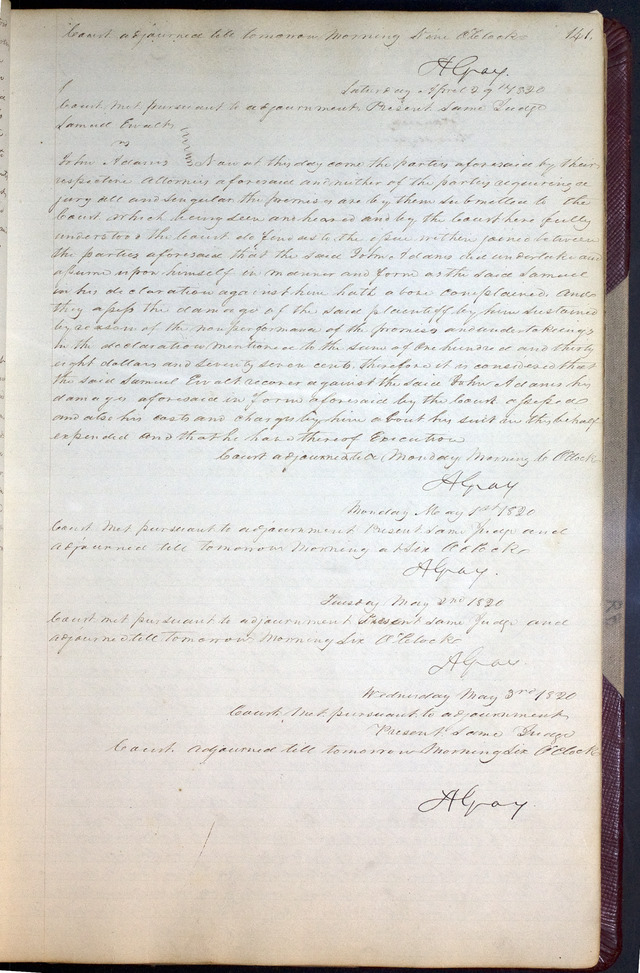 Court adjourned till tomorrow Morning Nine OClock 141.
A Gray.
Saturday April 29th 1820
Court Met pursuant to adjournment Present Same Judge
Samuel Ewalt
vs
John Adams Now at this day come the parties aforesaid by their
respective Attornies aforesaid and neither of the parties requiring a
jury all and singular the premises are by them submitted to the
Court which being seen and heard and by the Court here fully
understood the Court do find as to the issue within joined between
the parties aforesaid that the said John Adams did undertake and
assume upon himself in manner and form as the said Samuel
in his declaration against him hath above complained And
they assess the damage of the said plaintiff by him sustained
by reason of the nonperformance of the promises and undertakings
in the declaration mentioned to the sum of One hundred and thirty
eight dollars and seventy seven cents therefore it is considered that
the said Samuel Ewalt recover against the said John Adams his
damages aforesaid in form aforesaid by the Court assessed
and also his costs and charges by him about his suit in this behalf
expended and that he have thereof Execution
Court adjourned till Monday Morning 6 OClock
A Gray
Monday May 1st 1820
Court Met pursuant to adjournment Present Same Judge and
adjourned till tomorrow Morning at Six OClock
A Gray.
Tuesday May 2nd 1820
Court Met pursuant to adjournment Present Same Judge and
adjourned till tomorrow Morning Six OClock
A Gray
Wednesday May 3rd 1820
Court Met pursuant to adjournment
Present Same Judge
Court adjourned till tomorrow Morning Six OClock
A Gray